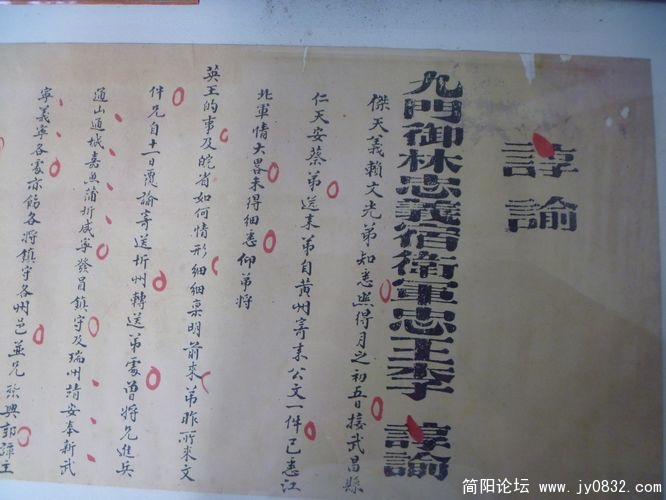 諄諭
九門御林忠義宿衛軍忠王李 諄諭
傑天義賴文光弟知悉照得月之初五日接武昌縣
仁天安蔡弟送來弟自黃州寄來公文一件已悉江
北軍情大畧未得細悉仰弟將
英王的事及皖省如何情形細細稟明前來弟昨所來文
件兄自十一日覆諭寄送圻州轉送弟處曾將兄進兵
通山通城嘉魚蒲圻咸寧發昌鎮守及瑞州靖安奉新武
寧義寧各處亦飭各將鎮守各州邑並兄
簡阳论坛 - www.jy0832.com